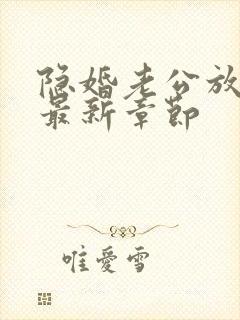 隐婚老公放
最新章节
唯爱雪